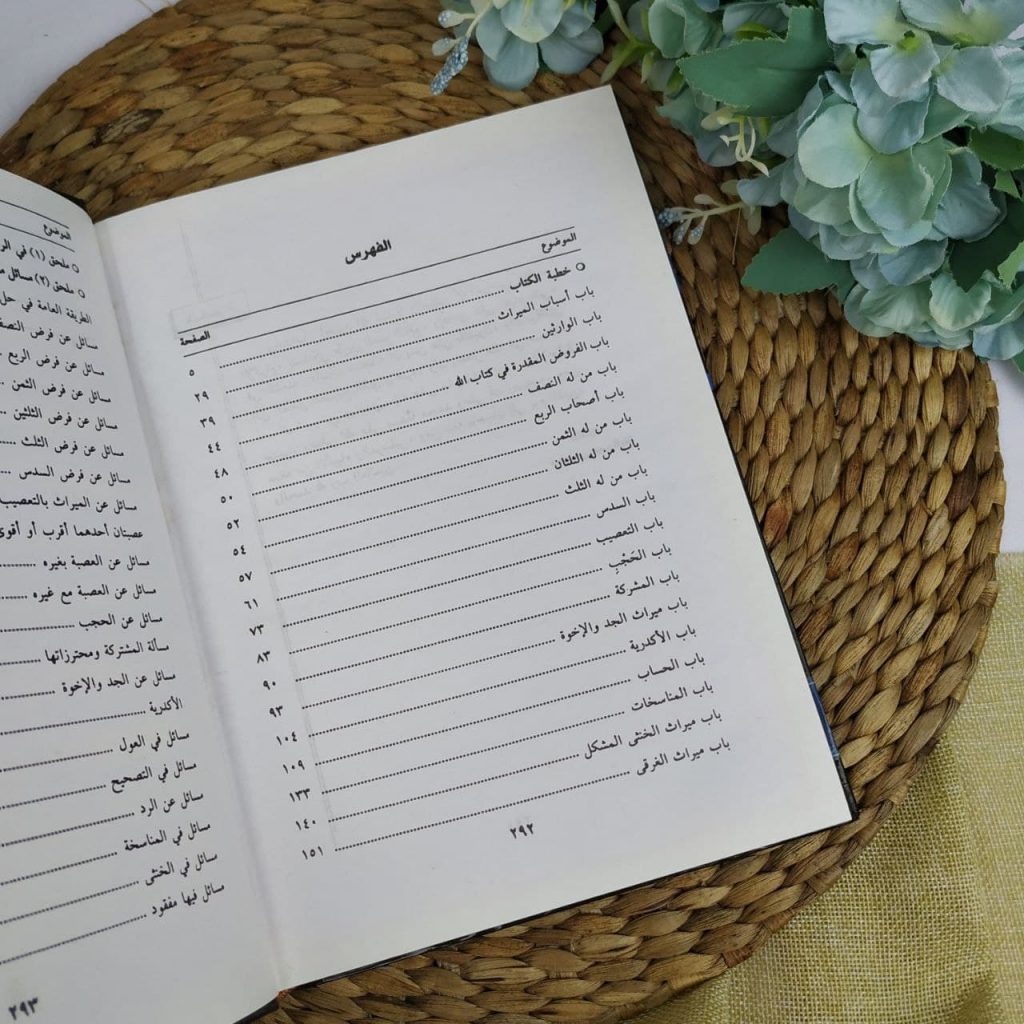 الفهرس
الموضوع الصفحة
○ خطبة الكتاب ٥
باب أسباب الميراث ٢٩
باب الوارثين ٣٩
باب الفروض المقدرة في كتاب الله ٤٤
باب من له النصف ٤٨
باب أصحاب الربع ٥٠
باب من له الثمن ٥٢
باب من له الثلثان ٥٤
باب من له الثلث ٥٧
باب السدس ٦١
باب التعصيب ٧٣
باب الحَجْب ٨٣
باب المشركة ٩٠
باب ميراث الجد والإخوة ٩٣
باب الأكدرية ١٠٤
باب الحساب ١٠٩
باب المناسخات ١٣٣
باب ميراث الخنثى المشكل ١٤٠
باب ميراث الغرقى ١٥١
٢٩٢
الموضوع
○ ملحق (١) في
○ ملحق (٢) مسائل
الطريقة العامة في حل
مسائل عن فرض
مسائل عن فرض الربع
مسائل عن فرض الثمن
مسائل عن فرض الثلثين
مسائل عن فرض الثلث
مسائل عن فرض السدس
مسائل عن الميراث بالتعصيب
عصبتان أحدهما أقرب أو أقوى
مسائل عن العصبة بغيره
مسائل عن العصبة مع غيره
مسائل عن الحجب
مسألة المشتركة ومحترزاتها
مسائل عن الجد والإخوة
الأكدرية
مسائل في العول
مسائل في التصحيح
مسائل عن الرد
مسائل في المناسخة
مسائل في الخنثى
مسائل فيها مفقود
٢٩٣